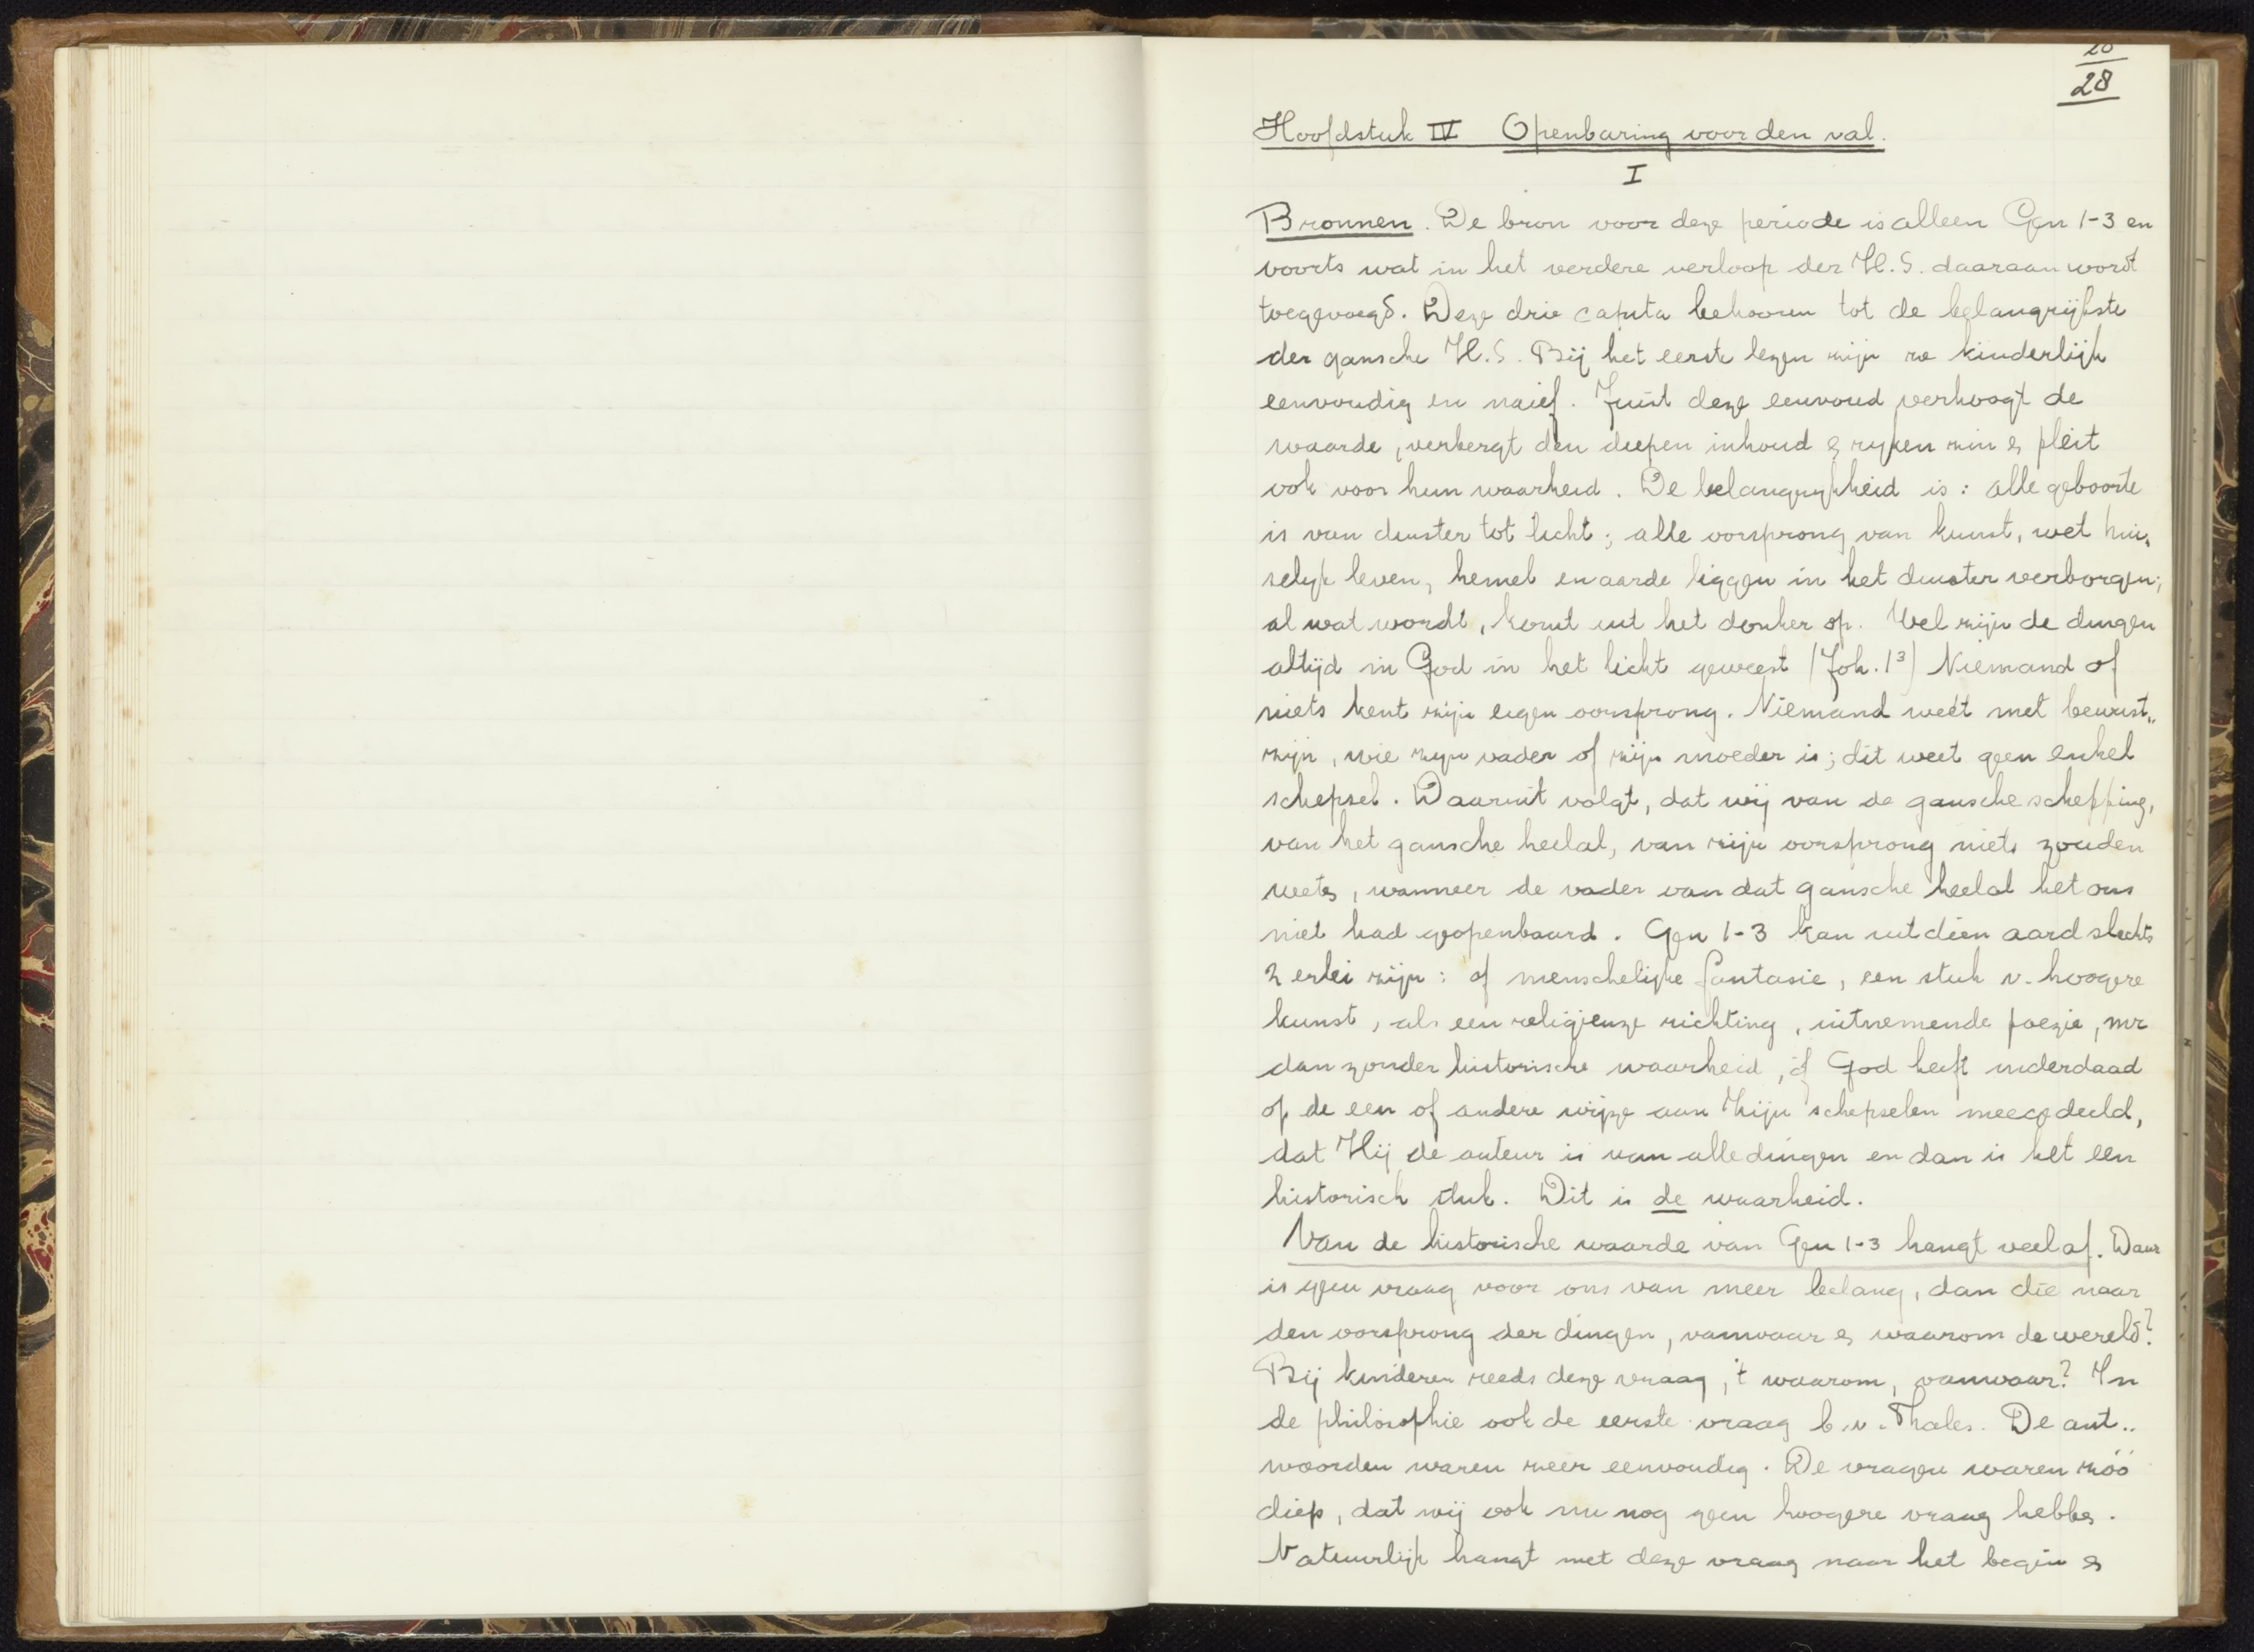 20
28
Hoofdstuk IV Openbaring voor den val.
I
Bronnen. De bron voor deze periode is alleen Gen 1-3 en
voorts wat in het verdere verloop der H.S. daaraan wordt
toegevoegd. Deze drie caputa behooren tot de belangrijkste
der gansche H.S. Bij het eerste lezen zijn ze kinderlijk
eenvoudig en naief. Juist deze eenvoud verhoogt de
waarde, verbergt den diepen inhoud & rijken zin & pleit
ook voor hun waarheid. De belangrijkheid is: alle geboorte
is van duister tot licht; alle oorsprong van kunst, wet hui„
selijk leven, hemel en aarde liggen in het duister verborgen;
al wat wordt, komt uit het donker op. Wel zijn de dingen
altijd in God in het licht geweest (Joh. 1³) Niemand of
niets kent zijn eigen oorsprong. Niemand weet met bewust„
zijn, wie zijn vader of zijn moeder is; dit weet geen enkel
schepsel. Daaruit volgt, dat wij van de gansche schepping,
van het gansche heelal, van zijn oorsprong niets zouden
weten, wanneer de vader van dat gansche heelal het ons
niet had geopenbaard. Gen 1-3 kan uit dien aard slechts
2 erlei zijn: of menschelijke fantasie, een stuk v. hoogere
kunst, als een religieuze richting, uitnemende poezie, mr
dan zonder historische waarheid, óf God heeft inderdaad
op de een of andere wijze aan Zijn schepselen meegedeeld,
dat Hij de auteur is van alle dingen en dan is het een
historisch stuk. Dit is de waarheid.
Van de historische waarde van Gen 1-3 hangt veel af. Daar
is geen vraag voor ons van meer belang, dan die naar
den oorsprong der dingen, vanwaar & waarom de wereld?
Bij kinderen reeds deze vraag, 't waarom, vanwaar? In
de philosophie ook de eerste vraag b.v. Thales. De ant„
woorden waren zeer eenvoudig. De vragen waren zóó
diep, dat wij ook nu nog geen hoogere vraag hebben.
Natuurlijk hangt met deze vraag naar het begin &